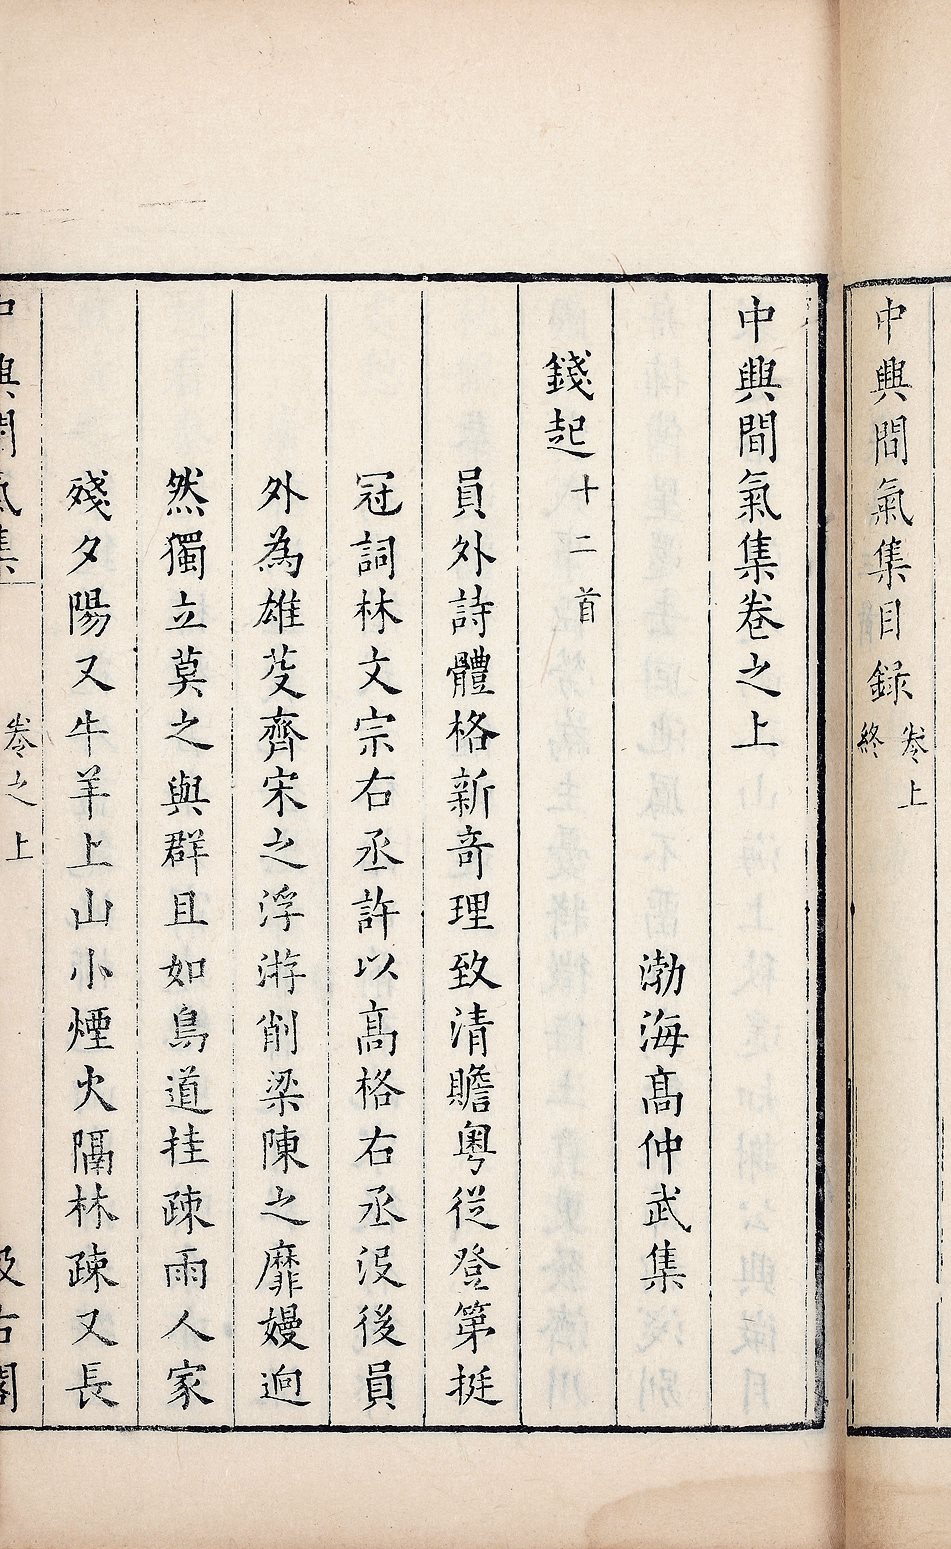 中興間氣集目録卷上終
中興間氣集卷之上
渤海髙仲武集
錢起十二首
員外詩體格新竒理致清贍粤從登第挺
冠詞林文宗右丞許以髙格右丞没後員
外為雄芟齊宋之浮游削梁陳之靡嫚迥
然獨立莫之與群且如鳥道挂疎雨人家
殘夕陽又牛羊上山小煙火隔林疎又長
中興間氣集 卷之上 汲古閣